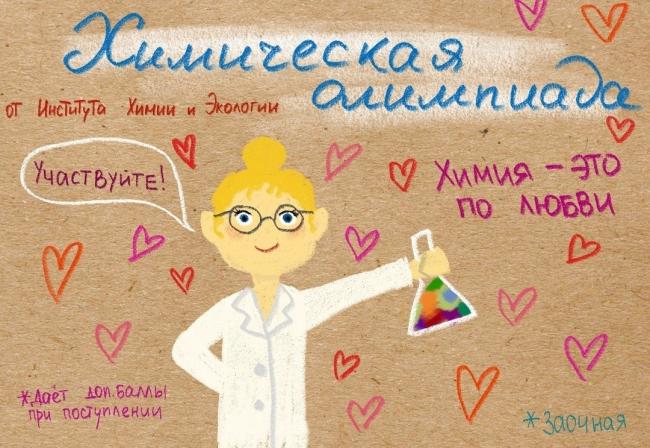 Химическая
олимпиада
от Института Химии и Экологии
Участвуйте!
Химия – это
по любви
*Даёт доп.баллы
при поступлении
*Заочная